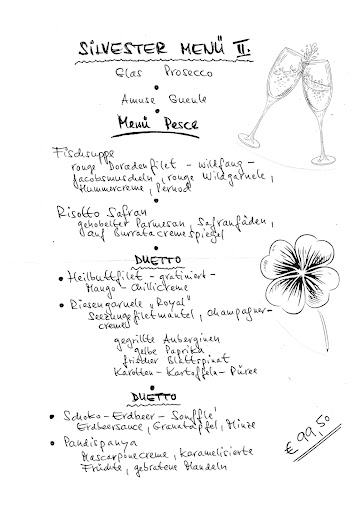 SILVESTER MENÜ II.
Glas Prosecco
Amuse Gueule
Menü Pesce
Fischsuppe
rouge Doradenfilet - Wildfang -
Jacobsmuscheln, rouge Wildgarnele,
Hummercreme, Pernod
Risotto Safran
gehobelter Parmesan, Safranfäden,
auf Burratacremespiegel
DUETTO
• Heilbuttfilet - gratiniert -
Mango - Chillicreme
• Riesengarnele „Royal"
Seezungefiletmantel, Champagner-
cremeus
gegrillte Auberginen
gelbe Paprika
frischer Blattspinat
Karotten - Kartoffeln - Püree
DUETTO
• Schoko - Erdbeer - Soufflé
Erdbeersauce, Granatapfel, Minze
• Pandispanya
Mascarponecreme, Karamelisierte
Früchte, gebratene Mandeln
€ 99,50